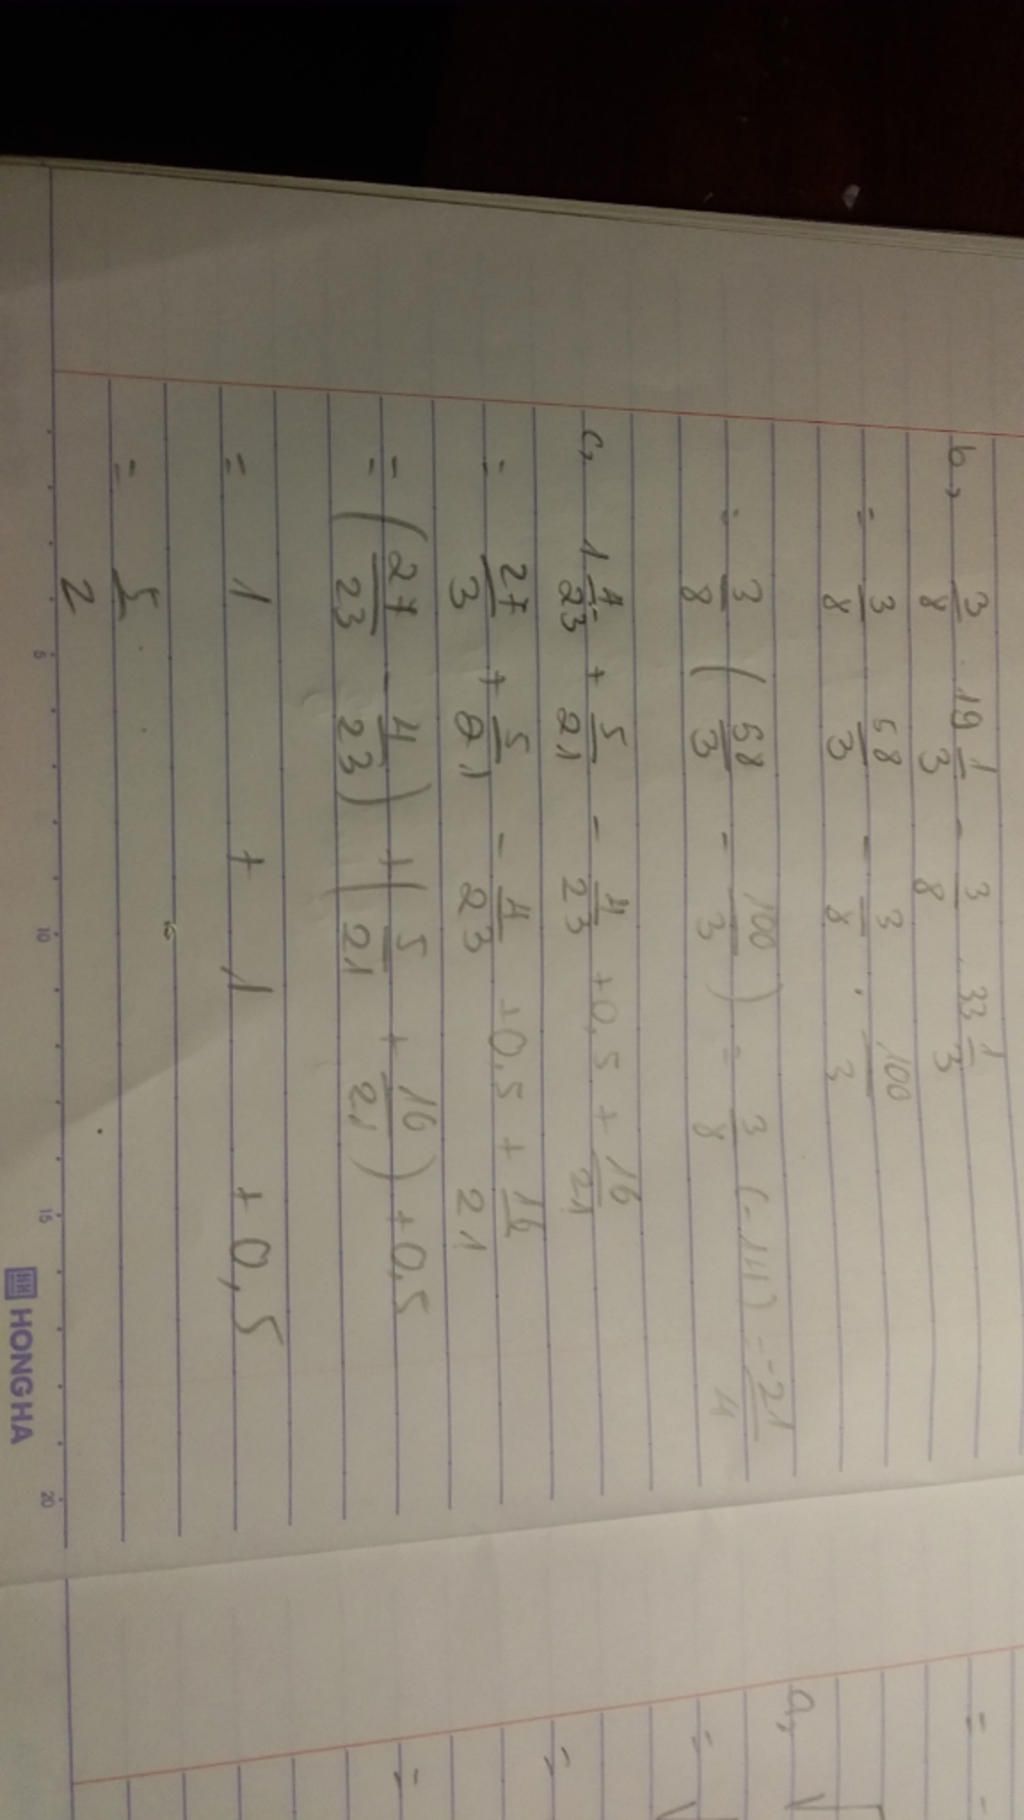 b, 3/8 . 19 1/3 - 3/8 . 33 1/3
= 3/8 58/3 - 3/8 . 100/3
= 3/8 ( 58/3 - 100/3 ) = 3/8 (-14) = -21/4
c, 1 4/23 + 5/21 - 4/23 + 0,5 + 16/21
= 27/3 + 5/21 - 4/23 + 0,5 + 16/21
= ( 27/23 - 4/23 ) + ( 5/21 + 16/21 ) + 0,5
= 1 + 1 + 0,5
= 5/2
5 10 15 20
HONG HA
a, √
=
=
=
=